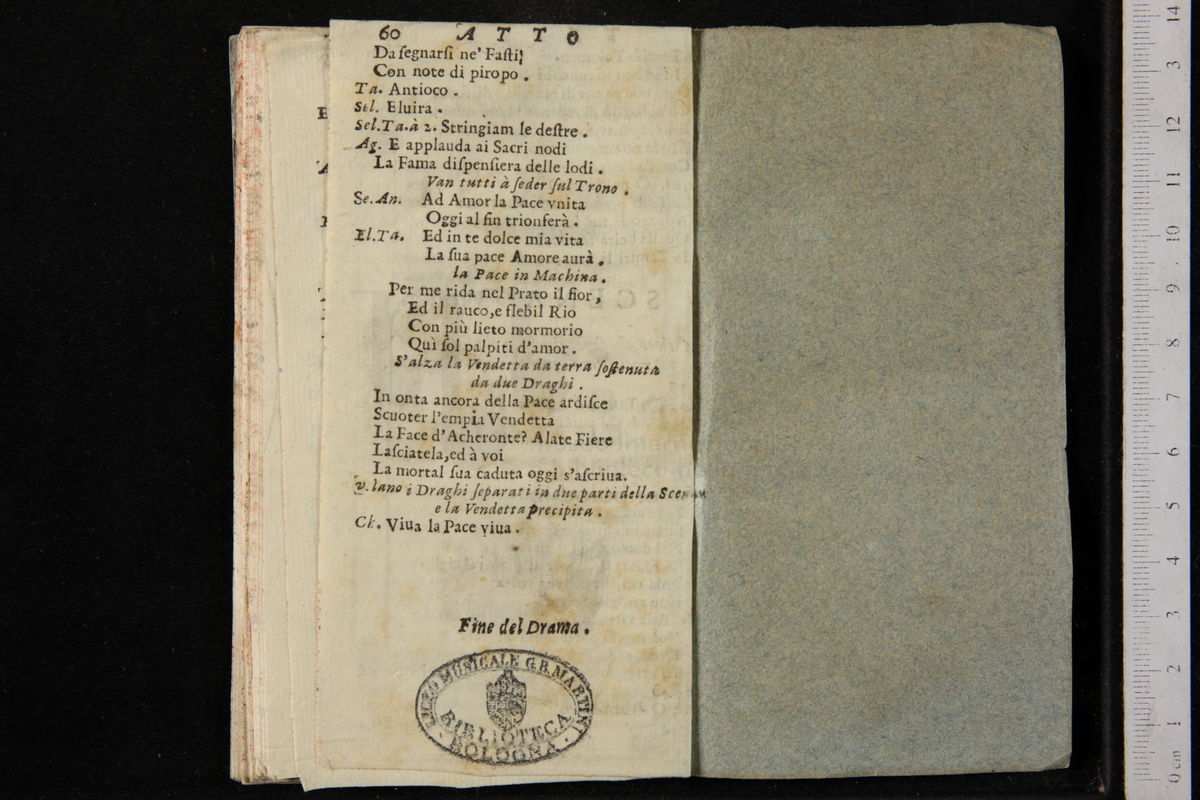 60 ATTO
Da ſegnarſi ne' Faſti;
Con note di piropo.
Ta. Antioco.
Sel. Eluira.
Sel.Ta.à 2. Stringiam le deſtre.
Ag. E applauda ai Sacri nodi
La Fama diſpenſiera delle lodi.
Van tutti à ſeder ſul Trono.
Se.An. Ad Amor la Pace vnita
Oggi al fin trionferà.
El.Ta. Ed in te dolce mia vita
La ſua pace Amore aurà.
la Pace in Machina.
Per me rida nel Prato il fior,
Ed il rauco, e flebil Rio
Con più lieto mormorio
Quì ſol palpiti d'amor.
S'alza la Vendetta da terra ſoſtenuta
da due Draghi.
In onta ancora della Pace ardiſce
Scuoter l'empia Vendetta
La Face d'Acheronte? Alate Fiere
Laſciatela, ed à voi
La mortal ſua caduta oggi s'aſcriua.
v.lano i Draghi ſeparati in due parti della Scena
e la Vendetta precipita.
Ch. Viua la Pace viua.
Fine del Drama.
LICEO MUSICALE G.B. MARTINI
BIBLIOTECA
BOLOGNA
0 cm 1 2 3 4 5 6 7 8 9 10 11 12 3 14